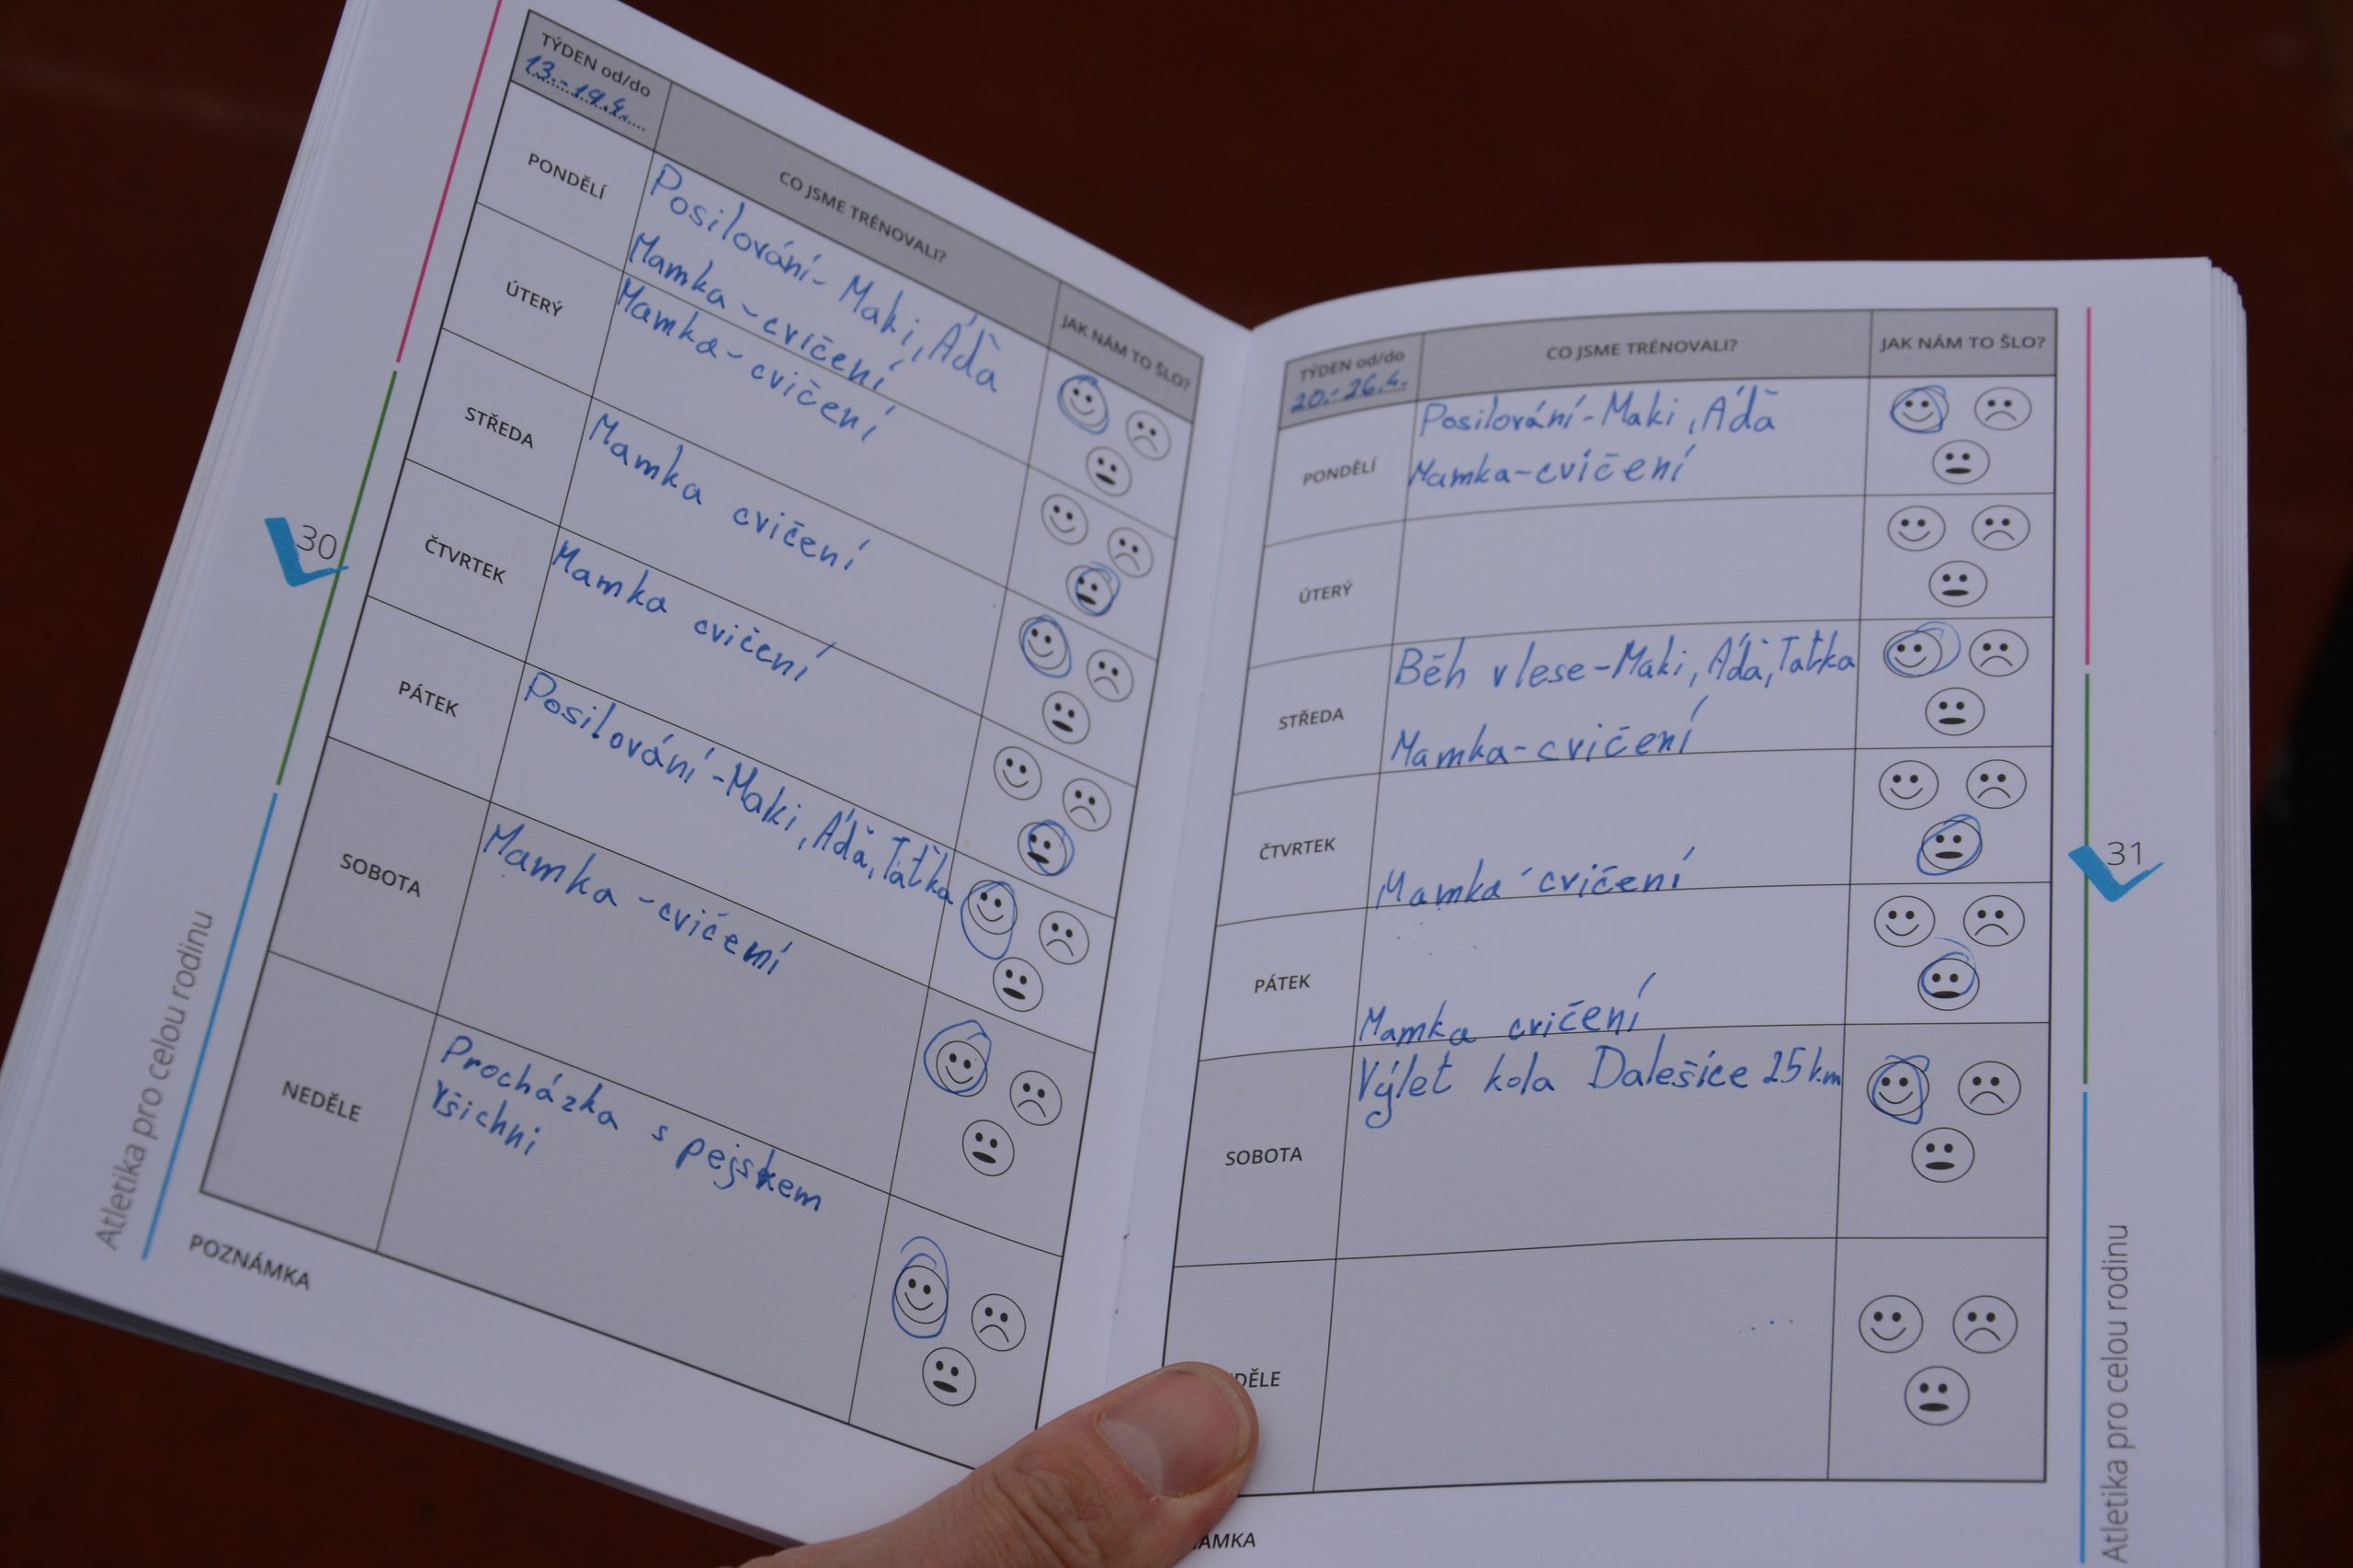 TÝDEN od/do
13.-19.4.
CO JSME TRÉNOVALI?
JAK NÁM TO ŠLO?
PONDĚLÍ
Posilování - Maki, Áďa
Mamka - cvičení
ÚTERÝ
Mamka - cvičení
STŘEDA
Mamka cvičení
ČTVRTEK
Mamka cvičení
PÁTEK
Posilování - Maki, Áďa, Taťka
SOBOTA
Mamka - cvičení
NEDĚLE
Procházka s pejskem
Všichni
POZNÁMKA
30
Atletika pro celou rodinu
TÝDEN od/do
20.-26.4.
CO JSME TRÉNOVALI?
JAK NÁM TO ŠLO?
PONDĚLÍ
Posilování - Maki, Áďa
Mamka - cvičení
ÚTERÝ
STŘEDA
Běh v lese - Maki, Áďa, Taťka
Mamka - cvičení
ČTVRTEK
Mamka cvičení
PÁTEK
Mamka cvičení
SOBOTA
Výlet kola Dalešice 25 km
DĚLE
AMKA
31
Atletika pro celou rodinu